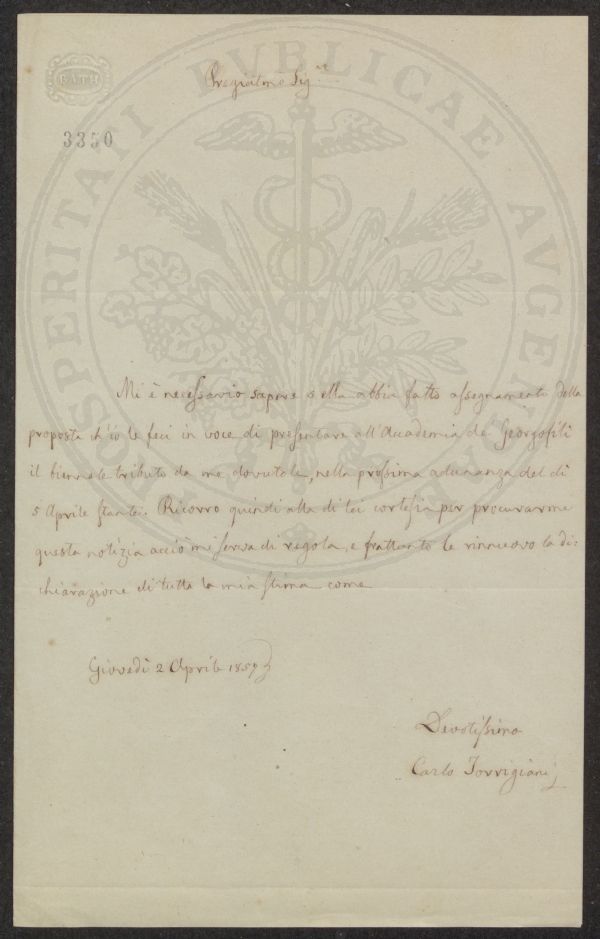 BATH
Pregiatmo Sigre
3350
PROSPERITATI PVBLICAE AVGENDAE
Mi è necessario sapere s' ella abbia fatto assegnamento della
proposta ch' io le feci in voce di presentare all' Accademia de' Georgofili
il biennale tributo da me dovutole, nella prossima adunanza del dì
5 Aprile stante. Ricorro quindi alla di lei cortesia per procurarmi
questa notizia acciò mi serva di regola, e frattanto le rinnuovo la di=
chiarazione di tutta la mia stima come
Giovedì 2 Aprile 1857
Devotissimo
Carlo Torrigiani